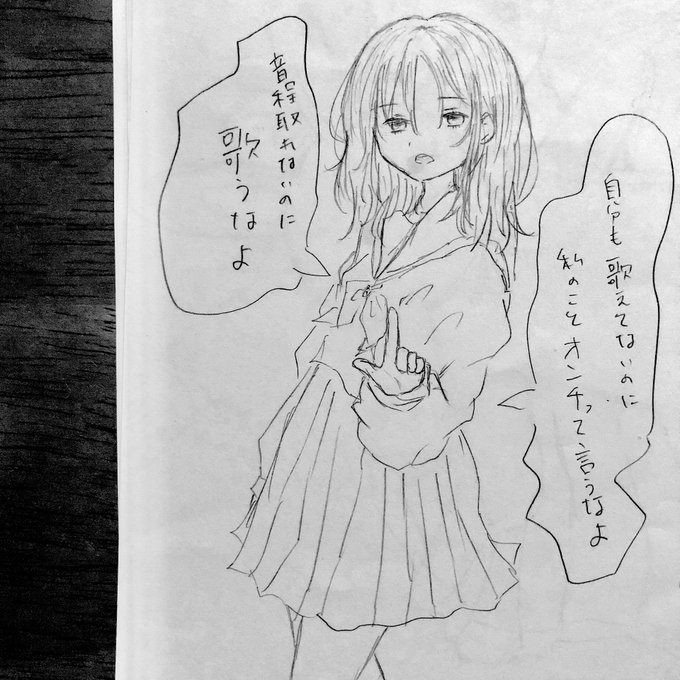 自分も歌えてないのに
私のことオンチって言うなよ
音程取れないのに
歌うなよ